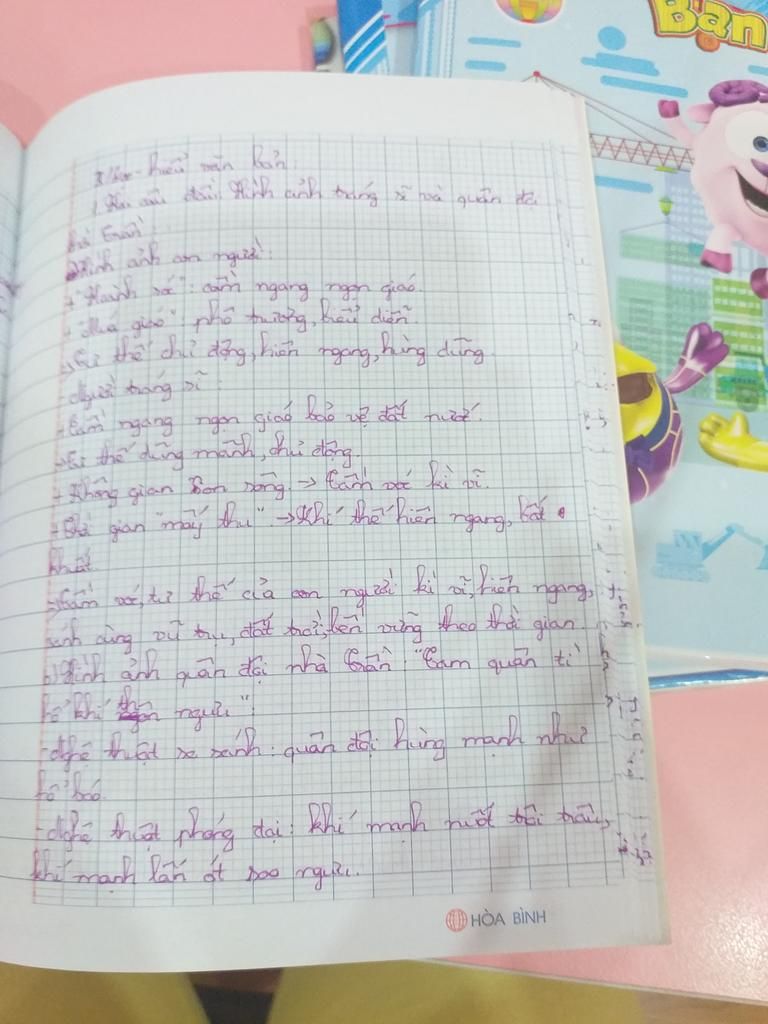 Bạn
II/Đọc-hiểu văn bản:
1/Hai câu đầu: Hình ảnh tráng sĩ và quân đội
thời Trần:
a)Hình ảnh con người:
+"Hoành sóc": cầm ngang ngọn giáo.
+"Múa giáo": phô trương, biểu diễn.
→Tư thế chủ động, hiên ngang, hùng dũng.
Người tráng sĩ:
-Cầm ngang ngọn giáo bảo vệ đất nước.
→Tư thế dũng mãnh, chủ động.
+Không gian non sông → Tầm vóc kì vĩ.
+Thời gian "mấy thu" → Khí thế hiên ngang, bất
khuất.
→Tầm vóc, tư thế của con người kì vĩ, hiên ngang,
sánh cùng vũ trụ, đất trời, bền vững theo thời gian.
b)Hình ảnh quân đội nhà Trần: "Tam quân tì
hổ khí thôn ngưu":
-Nghệ thuật so sánh: quân đội hùng mạnh như
hổ báo.
-Nghệ thuật phóng đại: khí mạnh nuốt trôi trâu,
khí mạnh lấn át sao ngưu.
HÒA BÌNH